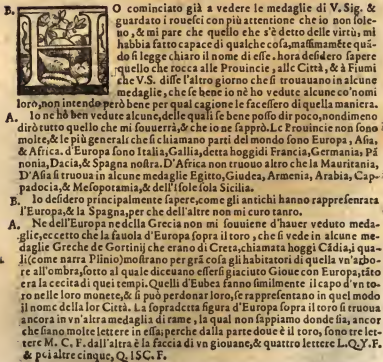 B. HO cominciato già a vedere le medaglie di V. Sig. &
guardato i rouesci con più attentione che io non sole-
uo, & mi pare che quello ehe s'è detto delle virtù, mi
habbia fatto capace di qualche cosa, massimamẽte quã-
do si legge chiaro il nome di esse. hora desidero sapere
quello che rocca alle Prouincie, alle Città, & à Fiumi
che V.S. disse l'altro giorno che si trouauano in alcune
medaglie, che se bene io nè ho vedute alcune co'nomi
loro, non intendo però bene per qual cagione le facessero di quella maniera.
A. Io ne hò ben vedute alcune, delle quali se bene posso dir poco, nondimeno
dirò tutto quello che mi souuerrà, & che io ne sapprò. Le Prouincie non sono
molte, & le più generali che si chiamano parti del mondo sono Europa, Asia,
& Africa. d'Europa sono Italia, Gallia, detta hoggidi Francia, Germania, Pã
nonia, Dacia, & Spagna nostra. D'Africa non truouo altro che la Mauritania,
D'Asia si truoua in alcune medaglie Egitto, Giudea, Armenia, Arabia, Cap-
padocia, & Mesopotamia, & dell'isole sola Sicilia.
B. Io desidero principalmente sapere, come gli antichi hanno rappresenrata
l'Europa, & la Spagna, per che dell'altre non mi curo tanro.
A. Ne dell'Europa ne della Grecia non mi souuiene d'hauer veduto meda-
glie, eccetto che la fauola d'Europa sopra il toro, che si vede in alcune me-
daglie Greche de Gortinij che erano di Creta, chiamata hoggi Cãdia, i qua-
li (come narra Plinio) mostrano per grã cosa gli habitatori di quella vn'agbo-
re all'ombra, sotto al quale diceuano essersi giaciuto Gioue con Europa, tãto
era la cecita di quei tempi. Quelli d'Eubea fanno similmente il capo d'vn to-
ro nelle loro munete, & si può perdonar loro, se rappresentano in quel modo
il nome della lor Città. La sopradetta figura d'Europa sopra il toro si truoua
ancora in vn'altra medaglia di rame, la qual non sappiamo donde sia, ancor
che siano molte lettere in essa; perche dalla parte doue è il toro, sono tre let-
tere M. C. F. dall'altra è la faccia di vn giouane, & quattro lettere L. Q. Y. F.
& poi altre cinque, Q. I S C. F.